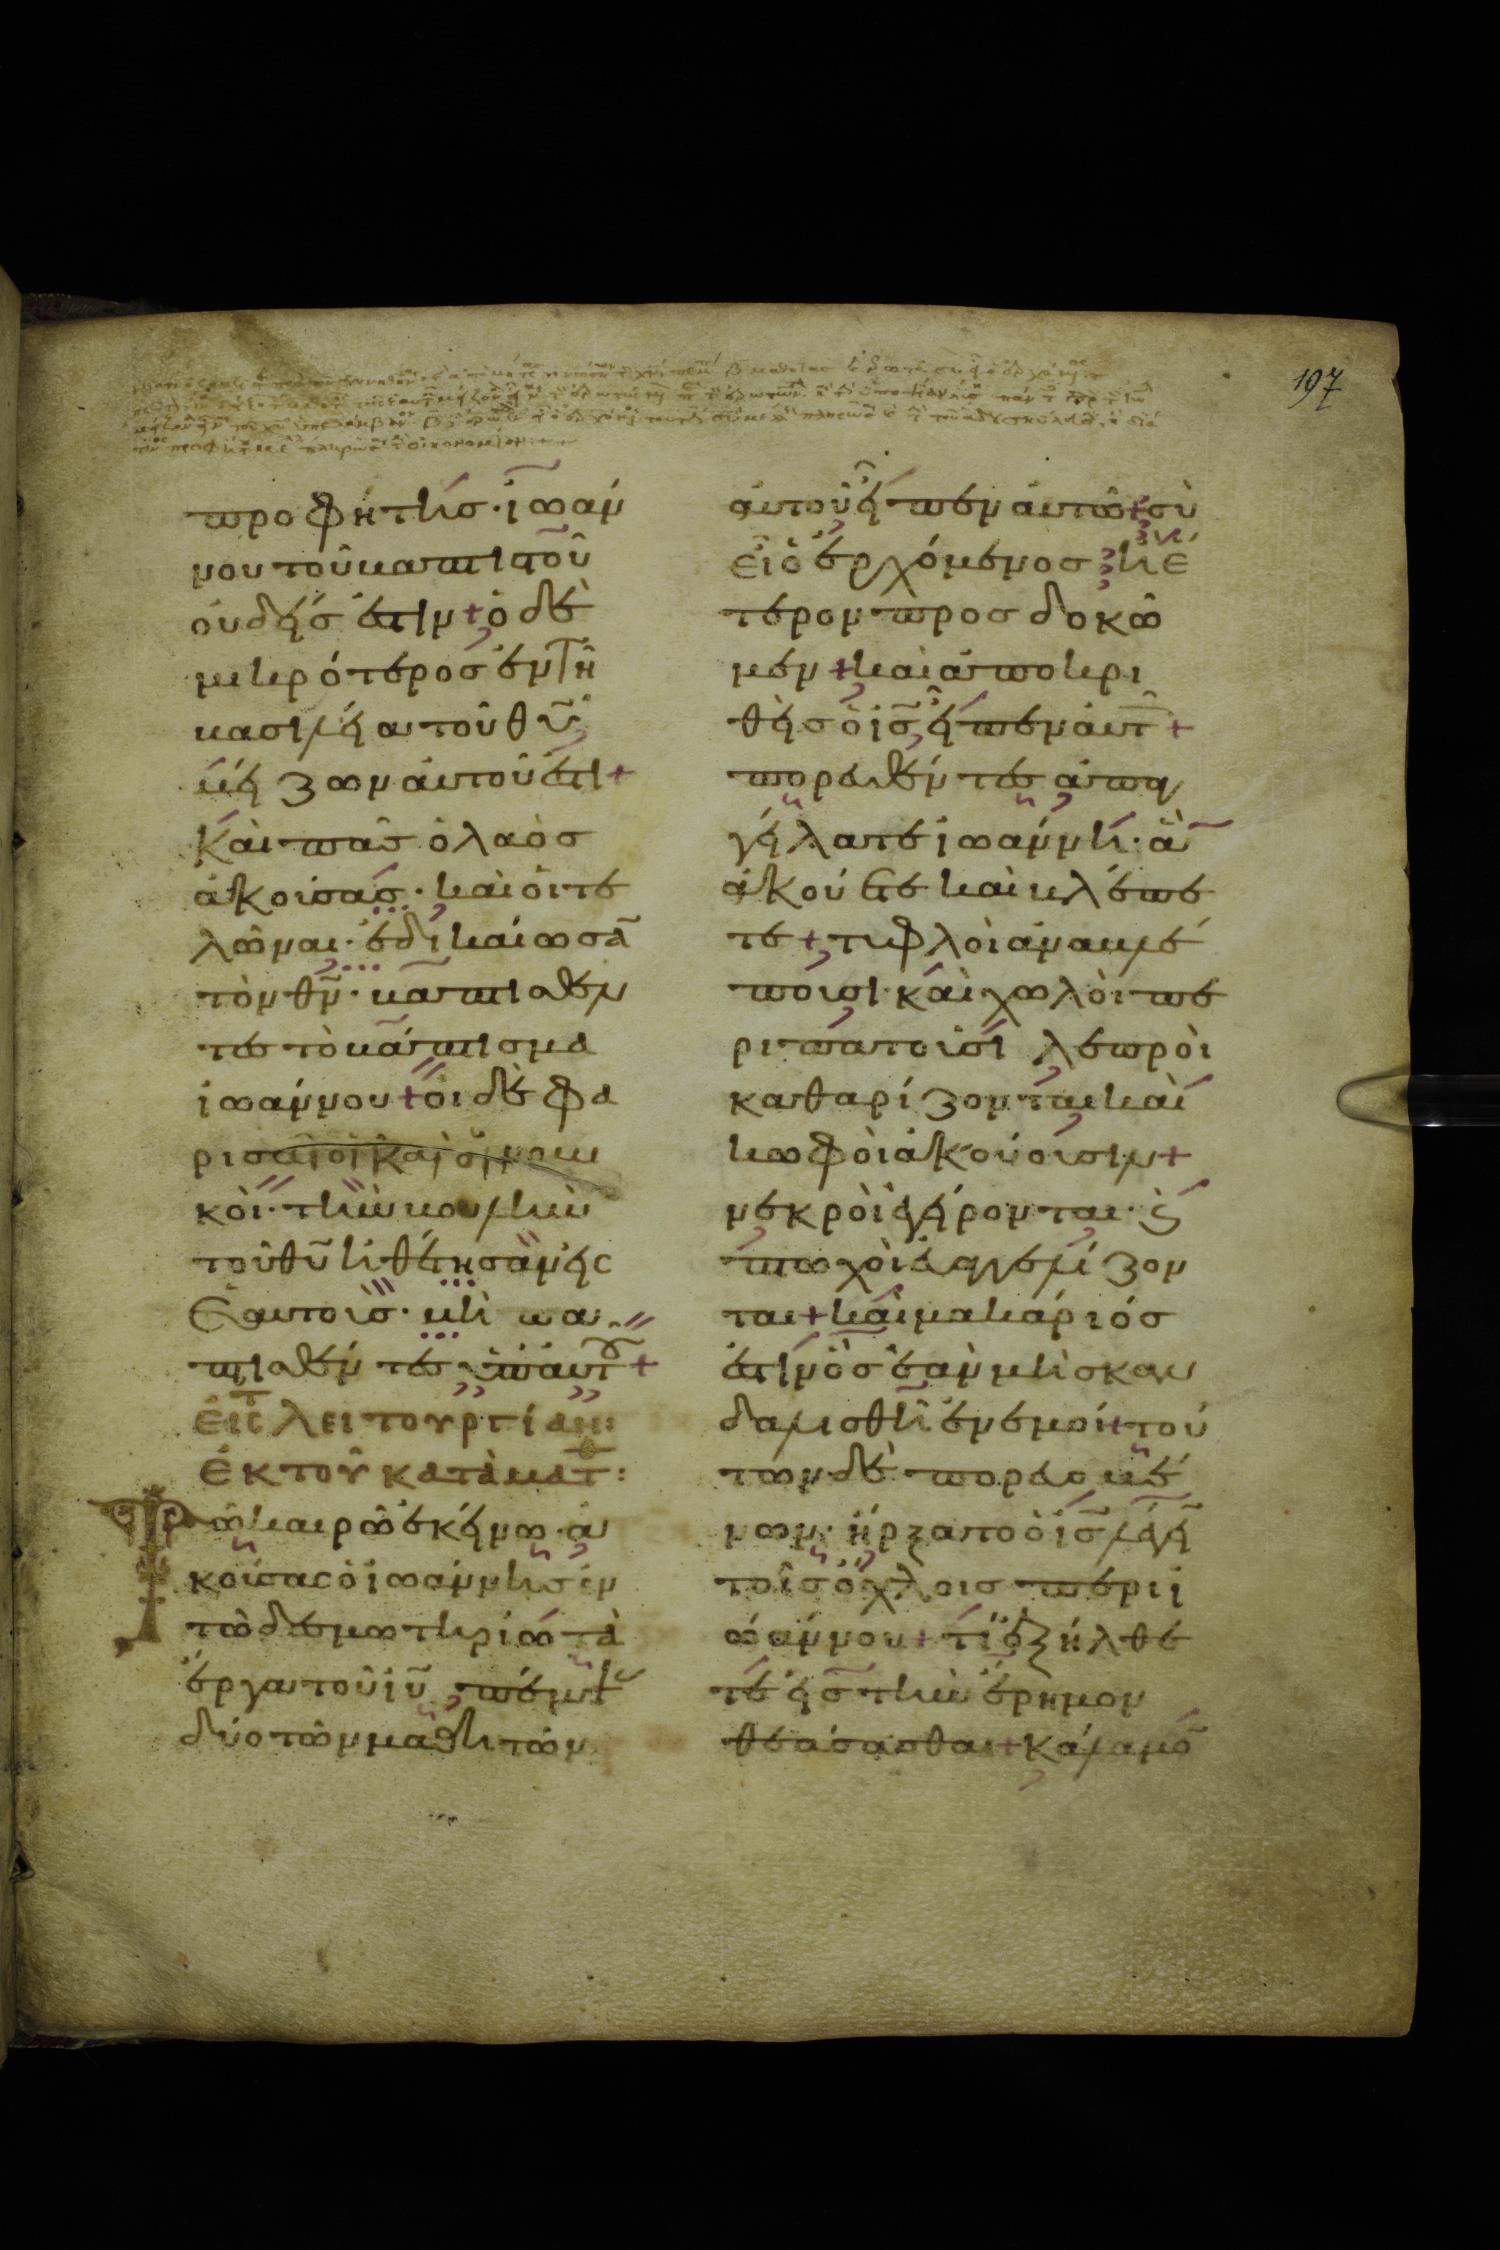 197
προφήτης · ἰωάν
νου τοῦ βαπτιστοῦ
οὐδείς ἐστιν + ὁ δὲ
μικρότερος ἐν τῆ
βασιλεία τοῦ θῦ
μείζων αὐτοῦ ἐστι +
Καὶ πᾶς ὁ λαὸς
ἀκούσας · καὶ οἱ τε
λῶναι · ἐδικαίωσα̅
τὸν θν̅ · βαπτισθέν
τες τὸ βάπτισμα
ἰωάννου + οἱ δὲ φα
ρισαῖοι καὶ οἱ νομι
κοὶ · τὴν βουλὴν
τοῦ θῦ ἠθέτησαν εἰς
ἑαυτούς · μὴ βα
πτισθέντες ὑπ' αὐτοῦ +
Εἰς τ λειτουργίαν :
Ἐκ τοῦ κατὰ ματ :
Τῶ καιρῶ ἐκείνω · ἀ
κούσας ὁ ἰωάννης ἐν
τῶ δεσμωτηρίω τὰ
ἔργα τοῦ ἰυ̅, πέμψας
δύο τῶν μαθητῶν
αὐτοῦ εἶπεν αὐτῶ + σὺ
εἶ ὁ ἐρχόμενος ἢ ἕ
τερον προσδοκῶ
μεν + καὶ ἀποκρι
θεὶς ὁ ις̅ εἶπεν αὐτ +
πορευθέντες ἀπαγ
γείλατε ἰωάννη · ἃ
ἀκούετε καὶ βλέπε
τε + τυφλοὶ ἀναβλέ
πουσι · καὶ χωλοὶ πε
ριπατοῦσι λεπροὶ
καθαρίζονται καὶ
κωφοὶ ἀκούουσιν +
νεκροὶ ἐγείρονται · ϗ
πτωχοὶ εὐαγγελίζον
ται + καὶ μακάριός
ἐστιν ὃς ἐὰν μὴ σκαν
δαλισθῆ ἐν ἐμοί + τού
των δὲ πορευομέ
νων · ἤρξατο ὁ ις̅ λέγειν
τοῖς ὄχλοις περὶ ἰ
ωάννου + τί ἐξήλθε
τε εἰς τὴν ἔρημον
θεάσασθαι + κάλαμο̅